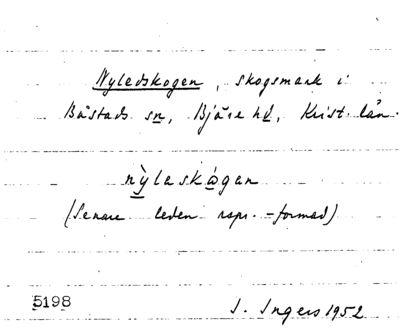 Nyledskogen, skogsmark i
Båstads sn, Bjäre hd, Krist. län.
nỳlaskógan
(Senare leden rspr.-formad)
5198 I. Ingers 1952